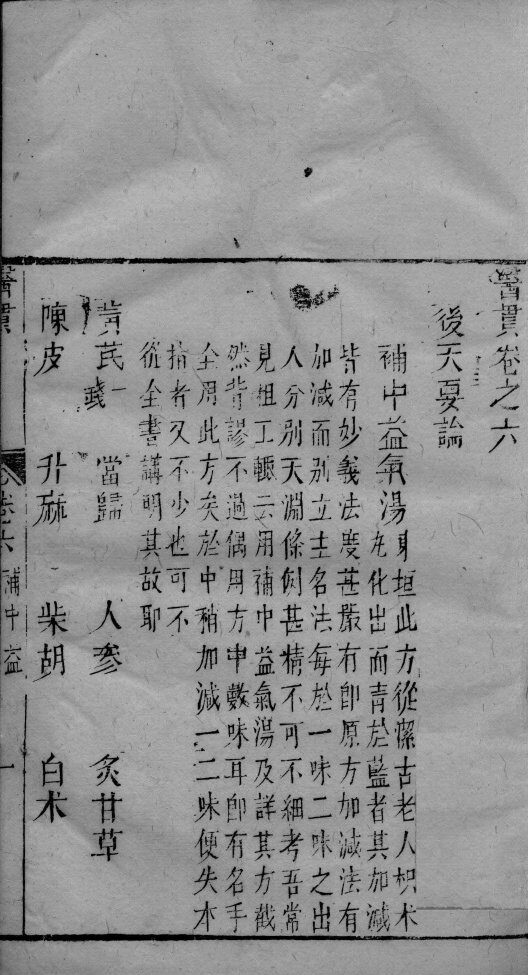 醫貫卷之六
後天要論
補中益氣湯 東垣此方從潔古老人枳术
丸化出而青於藍者其加減
皆有妙義法度甚嚴有即原方加減法有
加減而别立主名法每於一味二味之出
人分别天淵條例甚精不可不細考吾常
見粗工輒云用補中益氣湯及詳其方截
然背謬不過偶用方中數味耳即有名手
全用此方矣於中稍加減一二味便失本
指者又不少也可不
從全書講明其故耶
黃芪一錢 當歸 人參 炙甘草
陳皮 升麻 柴胡 白术
醫貫 卷六 補中益 一